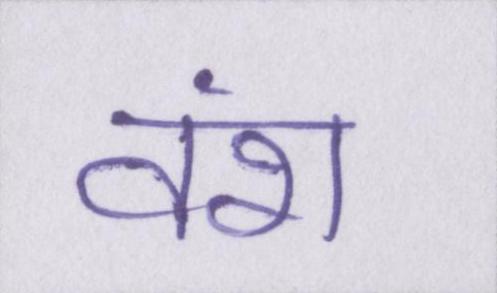 वंश